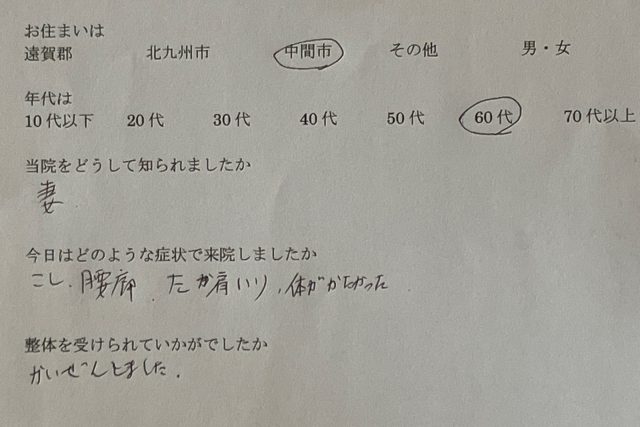 お住まいは
遠賀郡 北九州市 中間市 その他 男・女
年代は
10代以下 20代 30代 40代 50代 60代 70代以上
当院をどうして知られましたか
妻
今日はどのような症状で来院しましたか
こし、腰 たが肩いり、体がかたかった
整体を受けられていかがでしたか
かいぜんしました.